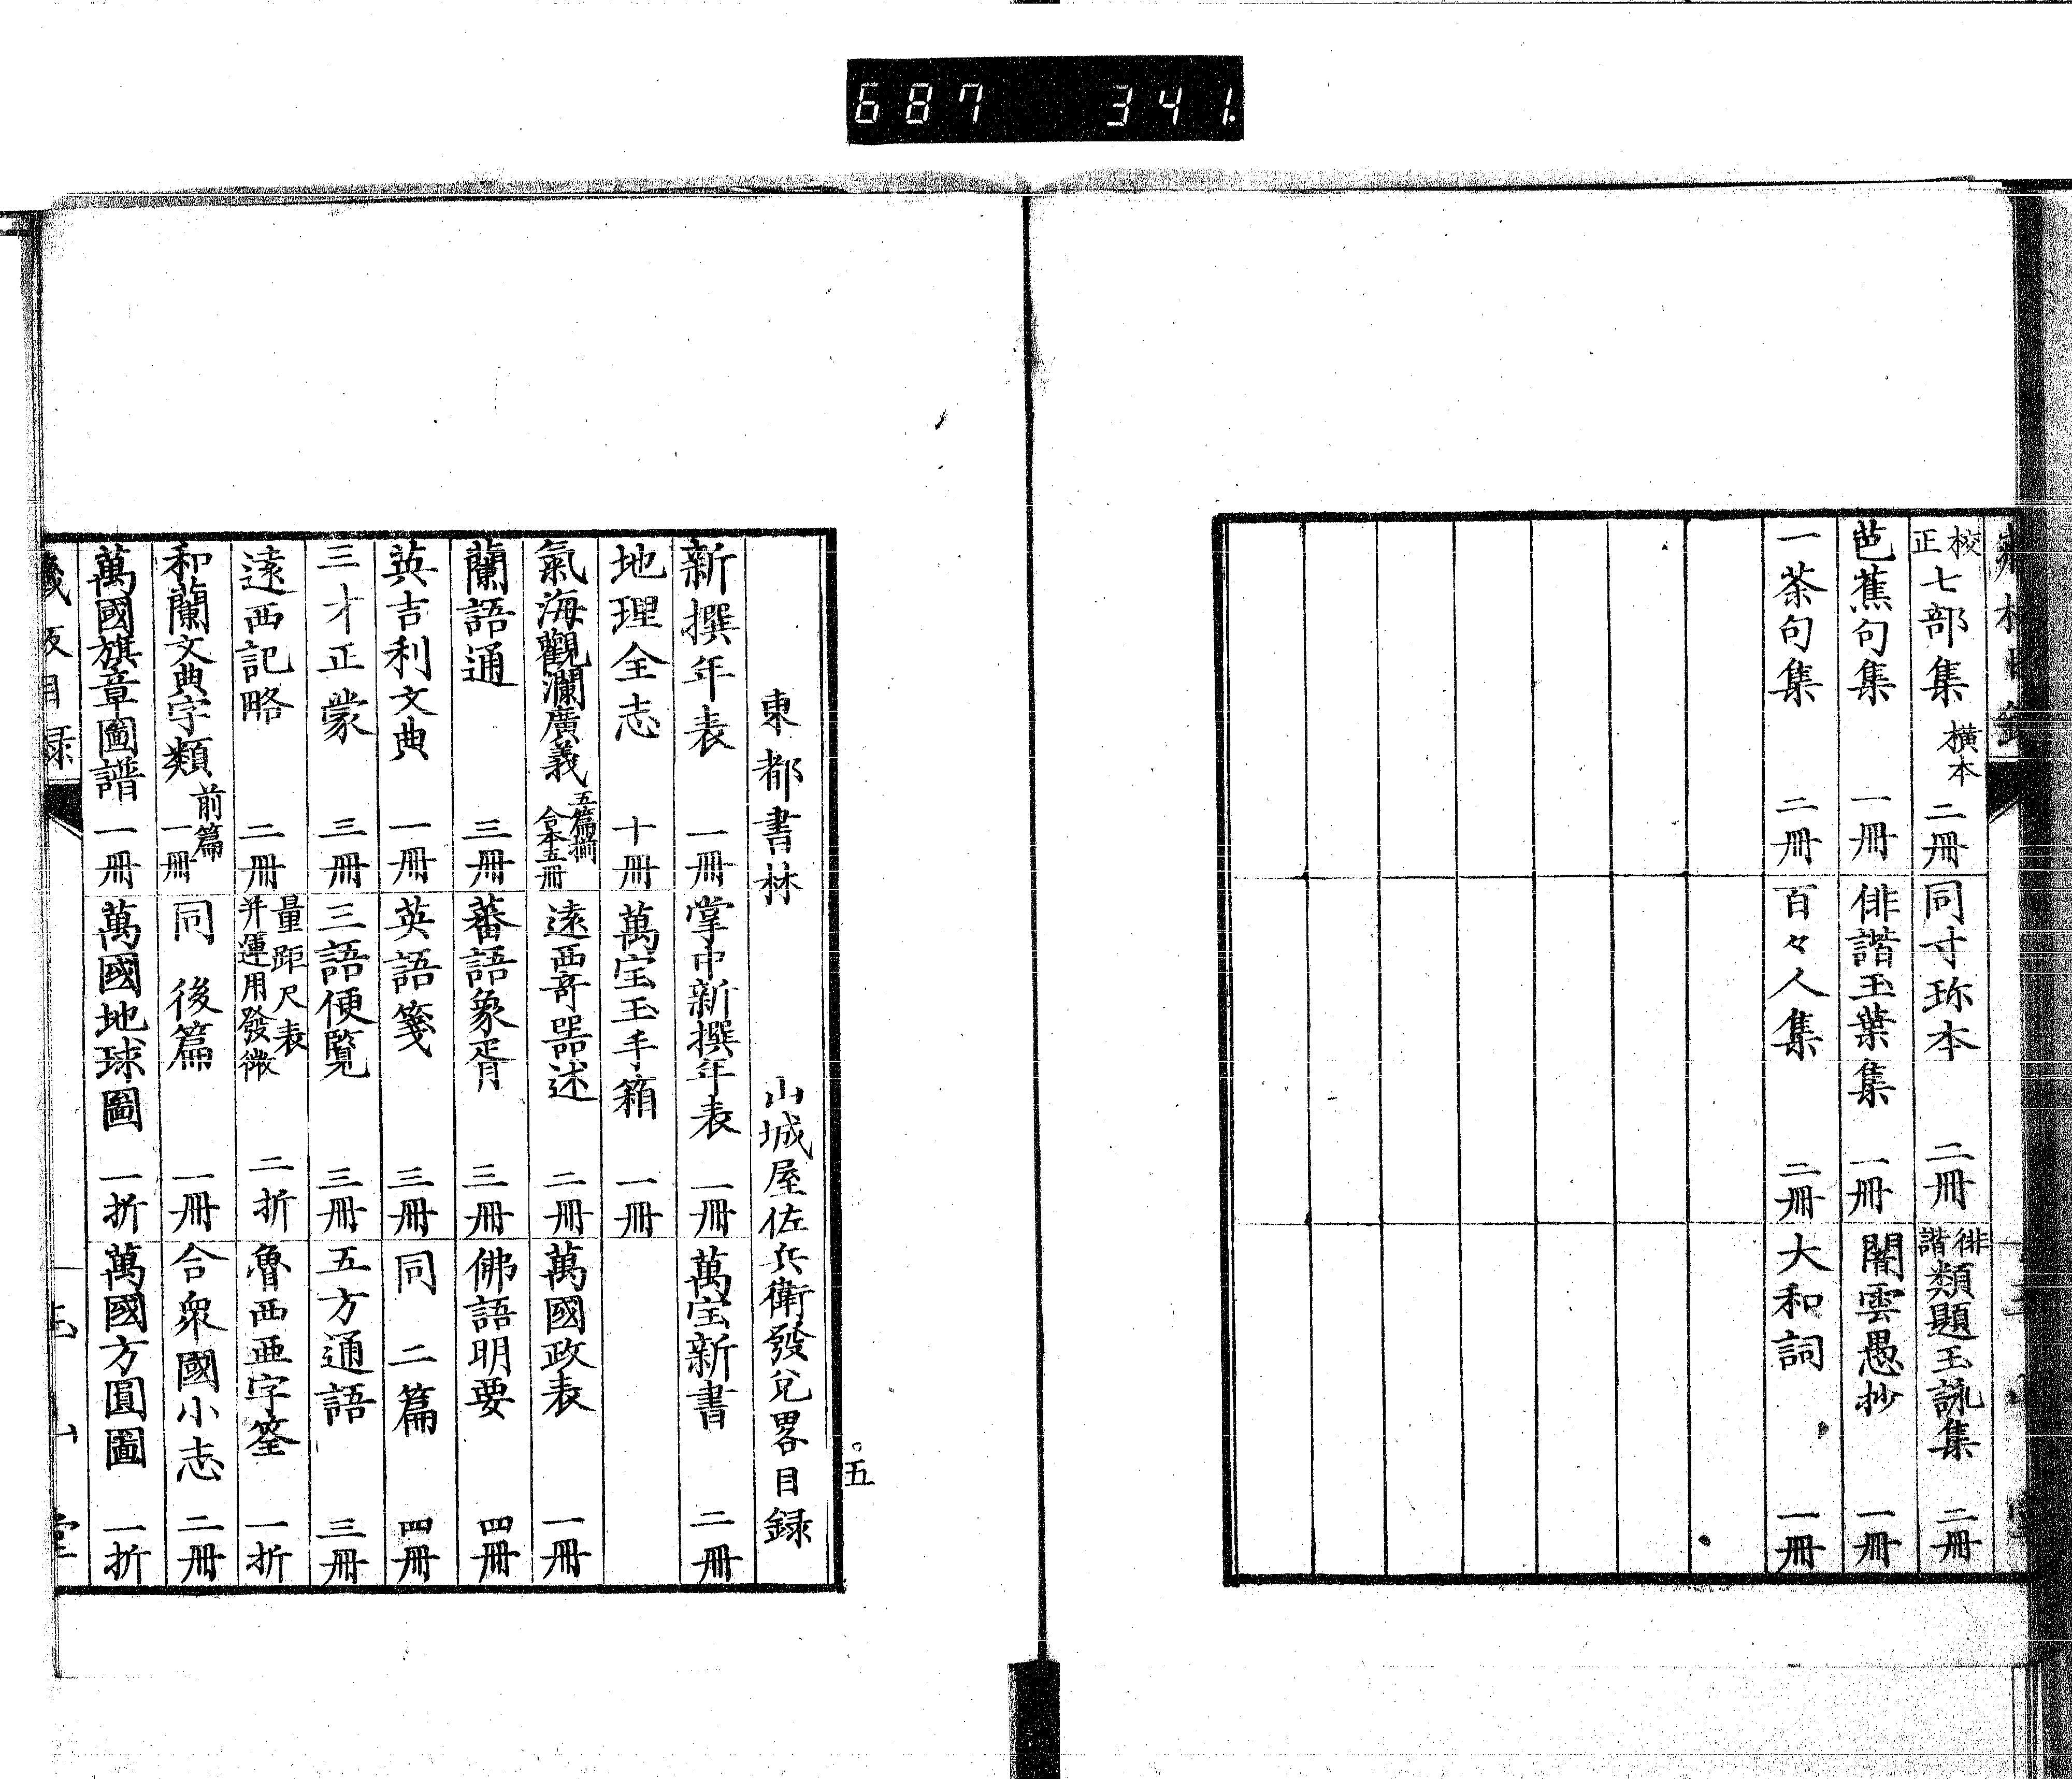 687 341.
校正七部集 横本 二冊 同寸珎本 二冊 俳諧類題玉詠集 二冊
芭蕉句集 一冊 俳諧玉葉集 一冊 闇雲愚抄 一冊
一茶句集 二冊 百々人集 二冊 大和詞 一冊
五
東都書林 山城屋佐兵衛發兌畧目録
新撰年表 一冊 掌中新撰年表 一冊 萬宝新書 二冊
地理全志 十冊 萬宝玉手箱 一冊
氣海觀瀾廣義 五篇揃合本五冊 遠西奇器述 二冊 萬國政表 一冊
蘭語通 三冊 蕃語象胥 三冊 佛語明要 四冊
英吉利文典 一冊 英語箋 三冊 同 二篇 四冊
三才正蒙 三冊 三語便覧 三冊 五方通語 三冊
遠西記略 二冊 量距尺表并運用發微 二折 魯西亜字筌 一折
和蘭文典字類 前篇一冊 同 後篇 一冊 合衆國小志 二冊
萬國旗章圖譜 一冊 萬國地球圖 一折 萬國方圓圖 一折